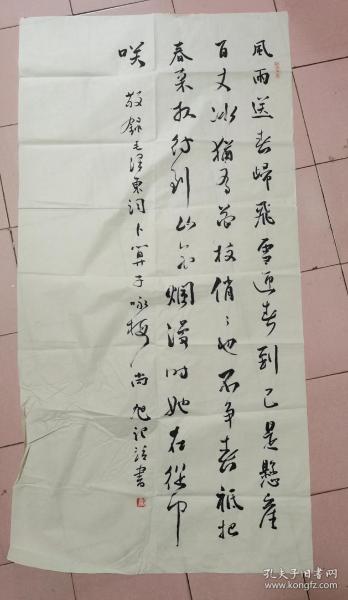 風雨送春歸飛雪迎春到已是懸崖
百丈冰猶有花枝俏俏也不爭春祇把
春來報待到山花爛漫時她在從中
咲
敬錄毛澤東詞卜算子咏梅
尚旭記 書
孔夫子旧书网